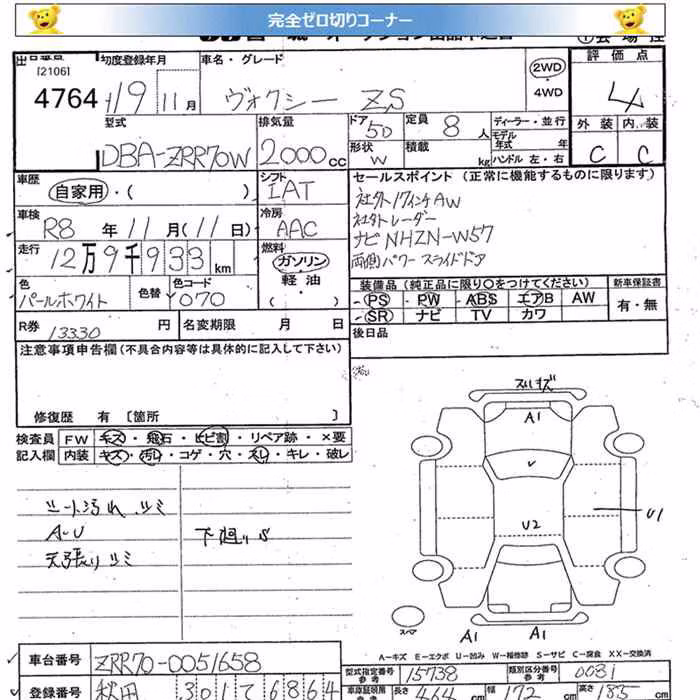 完全ゼロ切りコーナー
[2106]
4764
初度登録年月
19年11月
車名・グレード
ヴォクシー ZS
2WD
・
4WD
評価点
4
外装 内装
C C
型式
DBA-ZRR70W
排気量
2000cc
ドア
5D
形状
W
定員
8人
積載
kg
ディーラー・並行
モデル年式 年
ハンドル 左・右
車歴
自家用・( )
シフト
IAT
車検
R8年11月(11日)
冷房
AAC
走行
12万9千933km
燃料
ガソリン
・
軽油
( )
色
パールホワイト
色替
色コード
070
R券
13330円
名変期限 月 日
セールスポイント (正常に機能するものに限ります)
社外17インチAW
社外トレーダー
ナビNHZN-W57
両側パワースライドドア
装備品 (純正品に限り○をつけてください)
新車保証書
PS・PW・ABS エアB AW
SR ナビ TV カワ
有・無
後日品
注意事項申告欄(不具合内容等は具体的に記入して下さい)
修復歴 有 〔箇所 〕
検査員
記入欄
FW キズ・飛石・ヒビ割・リペア跡・×要
内装 キズ・汚れ・コゲ・穴・スレ・キレ・破レ
シート汚れ シミ
A・U
天張り シミ
下廻りS
スリキズ
A1
V
U2
U1
A1 A1
スペア
A-キズ E-エクボ U-凹み W-補修跡 S-サビ C-腐食 XX-交換済
車台番号
ZRR70-0051658
登録番号
秋田 301 て 6864
型式指定番号
参考
15738
類別区分番号
参考
0031
長さ
464
cm
幅
172
cm
高さ
185
cm